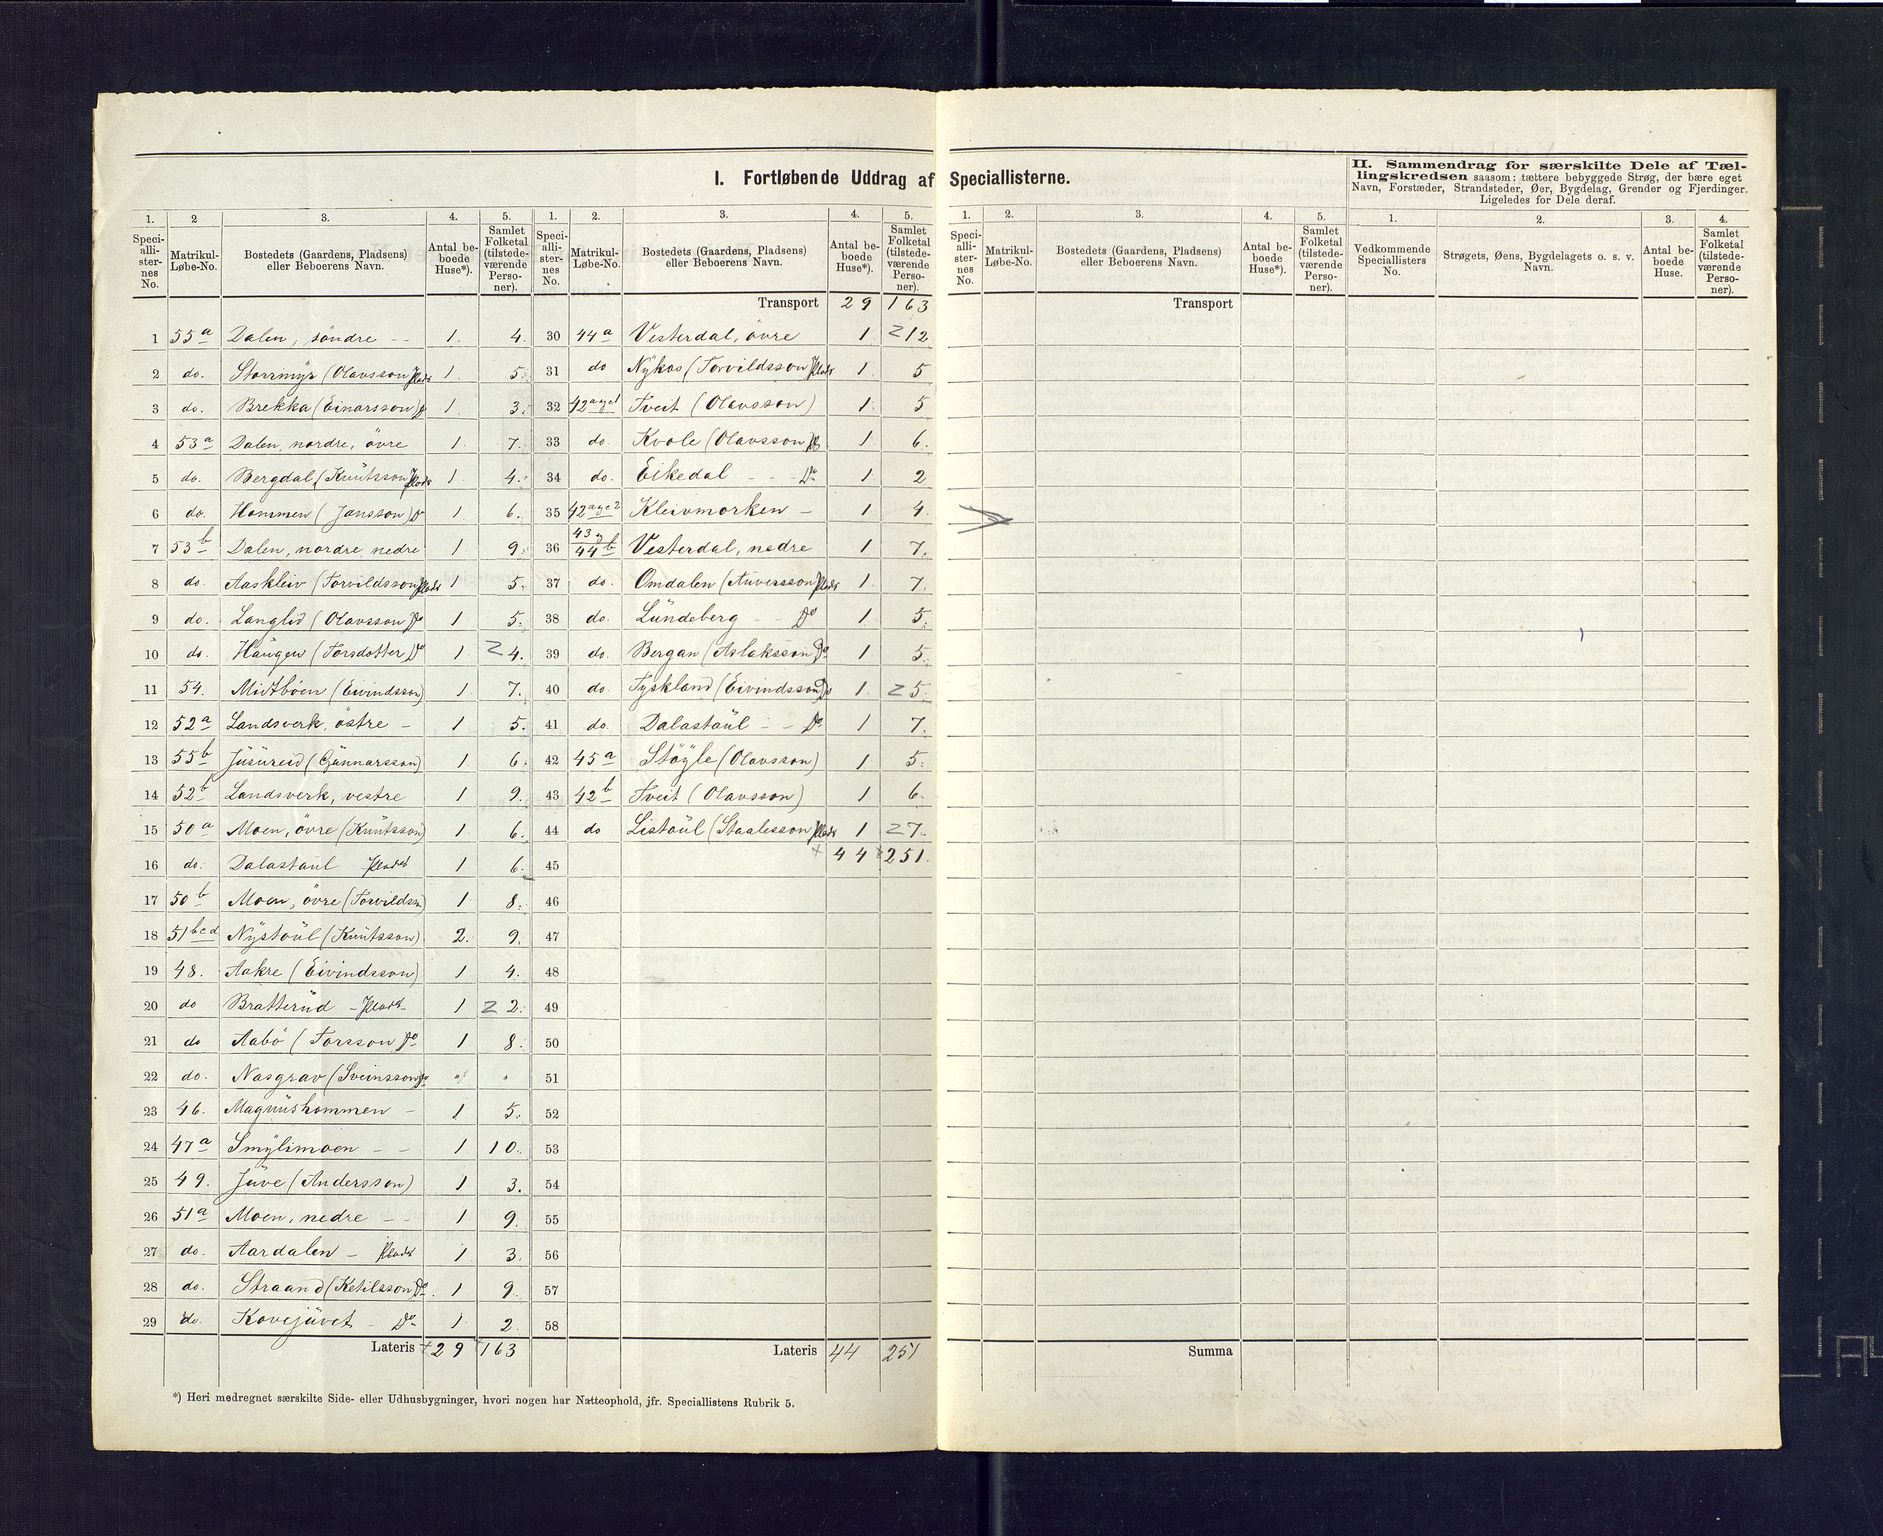 I. Fortløbende Uddrag af Speciallisterne.
II. Sammendrag for særskilte Dele af Tæl-
lingskredsen saasom: tættere bebyggede Strøg, der bære eget
Navn, Forstæder, Strandsteder, Øer, Bygdelag, Grender og Fjerdinger.
Ligeledes for Dele deraf.
1. 2 3. 4. 5. 1. 2. 3. 4. 5. 1. 2. 3. 4. 5. 1. 2. 3. 4.
Speci-alli-ster-nes No. Matrikul-Løbe-No. Bostedets (Gaardens, Pladsens) eller Beboerens Navn. Antal be-boede Huse*). Samlet Folketal (tilstede-værende Perso-ner).
Speci-alli-ster-nes No. Matrikul-Løbe-No. Bostedets (Gaardens, Pladsens) eller Beboerens Navn. Antal be-boede Huse*). Samlet Folketal (tilstede-værende Perso-ner).
Speci-alli-ster-nes No. Matrikul-Løbe-No. Bostedets (Gaardens, Pladsens) eller Beboerens Navn. Antal be-boede Huse*). Samlet Folketal (tilstede-værende Perso-ner).
Vedkommende Speciallisters No. Strøgets, Øens, Bygdelagets o. s. v. Navn. Antal be-boede Huse. Samlet Folketal (tilstede-værende Perso-ner).
1 55a Dalen, söndre - - 1. 4.
2 do. Storrmyr (Olavsson Plads 1. 5.
3 do. Brekka (Einarsson) Do 1. 3.
4 53a Dalen, nordre, övre 1. 7.
5 do. Bergdal (Knutsson Plads 1. 4.
6 do. Hommen (Jansson) Do 1. 6.
7 53b Dalen, nordre, nedre 1 9.
8 do. Aaskleiv (Torvildsson Plads 1 5.
9 do. Langlid (Olavsson Do 1 5.
10 do. Haugen (Torsdotter Do 1. 4.
11 54. Midtböen (Eivindsson) 1 7.
12 52a Landsverk, östre - 1 5.
13 55b Jusureid (Gunnarsson) 1 6.
14 52b Landsverk, vestre 1 9.
15 50a Moen, övre (Knutsson) 1 6.
16 do. Dalastaul Plads 1 6.
17 50b Moen, övre (Torvildsn 1 8.
18 51bcd Nystoul (Knutsson) 2. 9.
19 48. Aakre (Eivindsson) 1 4.
20 do Bratterud - Plads - 1 2.
21 do Aabö (Torsson Do 1 8.
22 do. Nasgrav (Sveinsson Do " "
23 46. Magnushommen - 1 5.
24 47a Smylimoen - - 1 10.
25 49. Juve (Andersson) 1 3.
26 51a Moen, nedre - - 1 9.
27 do. Aardalen - Plads 1 3.
28 do. Straand (Ketilsson Do 1 9.
29 do. Kovejuvet - Do 1. 2.
Lateris 29 163
Transport 29 163
30 44a Vesterdal, övre 1 12
31 do Nykos (Torvildsson Plads 1 5
32 Tveit (Olavsson) 1 5
33 do. Kvole (Olavsson Pl 1 6.
34 do. Eikedal - - - Do 1 2
35 Kleivmorken - 1 4.
36 44b Vesterdal, nedre 1 7.
37 do. Omdalen (Auversson Plads 1. 7.
38 do. Lundeberg - - Do 1 5.
39 do. Bergan (Aslaksson Do 1 5.
40 do. Tyskland (Eivindsson Do 1. 5.
41 do. Dalastoul - - Do 1 7.
42 45a Stöyle (Olavsson) 1 5.
43 42b Tveit (Olavsson) 1 6.
44 do Listoul (Staalesson Plads 1 7.
44 251.
45
46
47
48
49
50
51
52
53
54
55
56
57
58
Lateris 44 251
Transport
Summa
*) Heri medregnet særskilte Side- eller Udhusbygninger, hvori nogen har Natteophold, jfr. Speciallistens Rubrik 5.